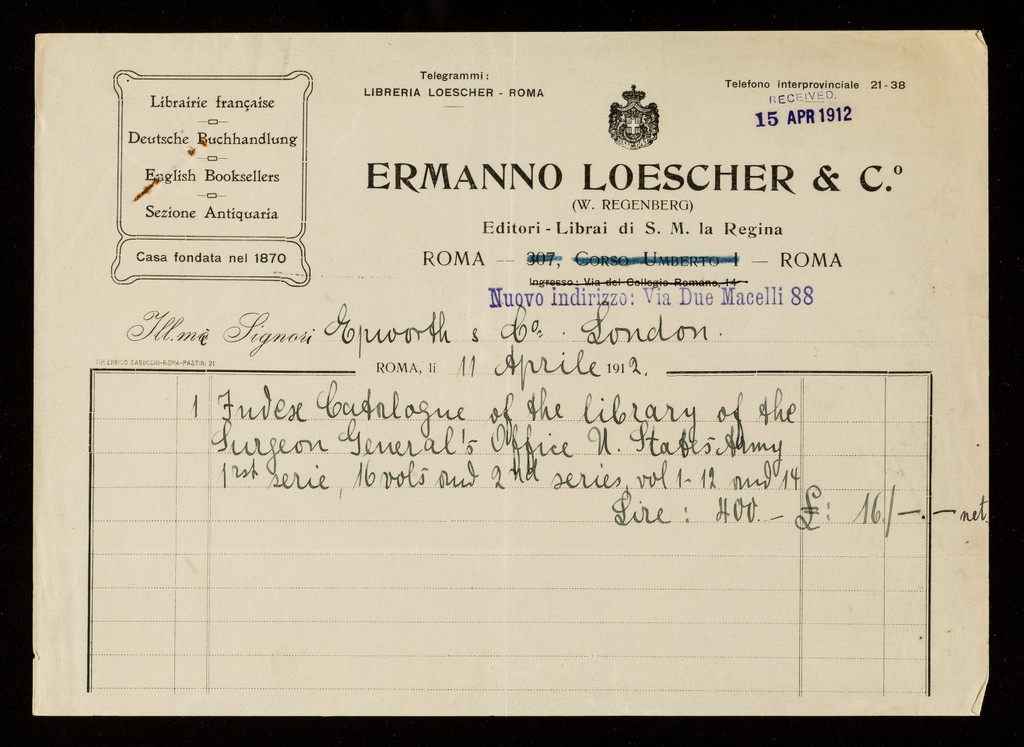 Librairie française
Deutsche Buchhandlung
English Booksellers
Sezione Antiquaria
Casa fondata nel 1870
Telegrammi:
LIBRERIA LOESCHER - ROMA
Telefono interprovinciale 21-38
RECEIVED.
15 APR 1912
ERMANNO LOESCHER & C.º
(W. REGENBERG)
Editori - Librai di S. M. la Regina
ROMA — 307, CORSO UMBERTO I — ROMA
Ingresso: Via del Collegio Romano, 14
Nuovo indirizzo: Via Due Macelli 88
Ill.mi Signori Epworth & Co. London.
TIP. ENRICO SABUCCHI-ROMA-PASTINI 21
ROMA, li 11 Aprile 1912.
1 Index Catalogue of the library of the
Surgeon General's Office U. States Army
1rst serie, 16 vols and 2nd series, vol 1-12 and 14
Lire: 400.— £: 16/—.— net.